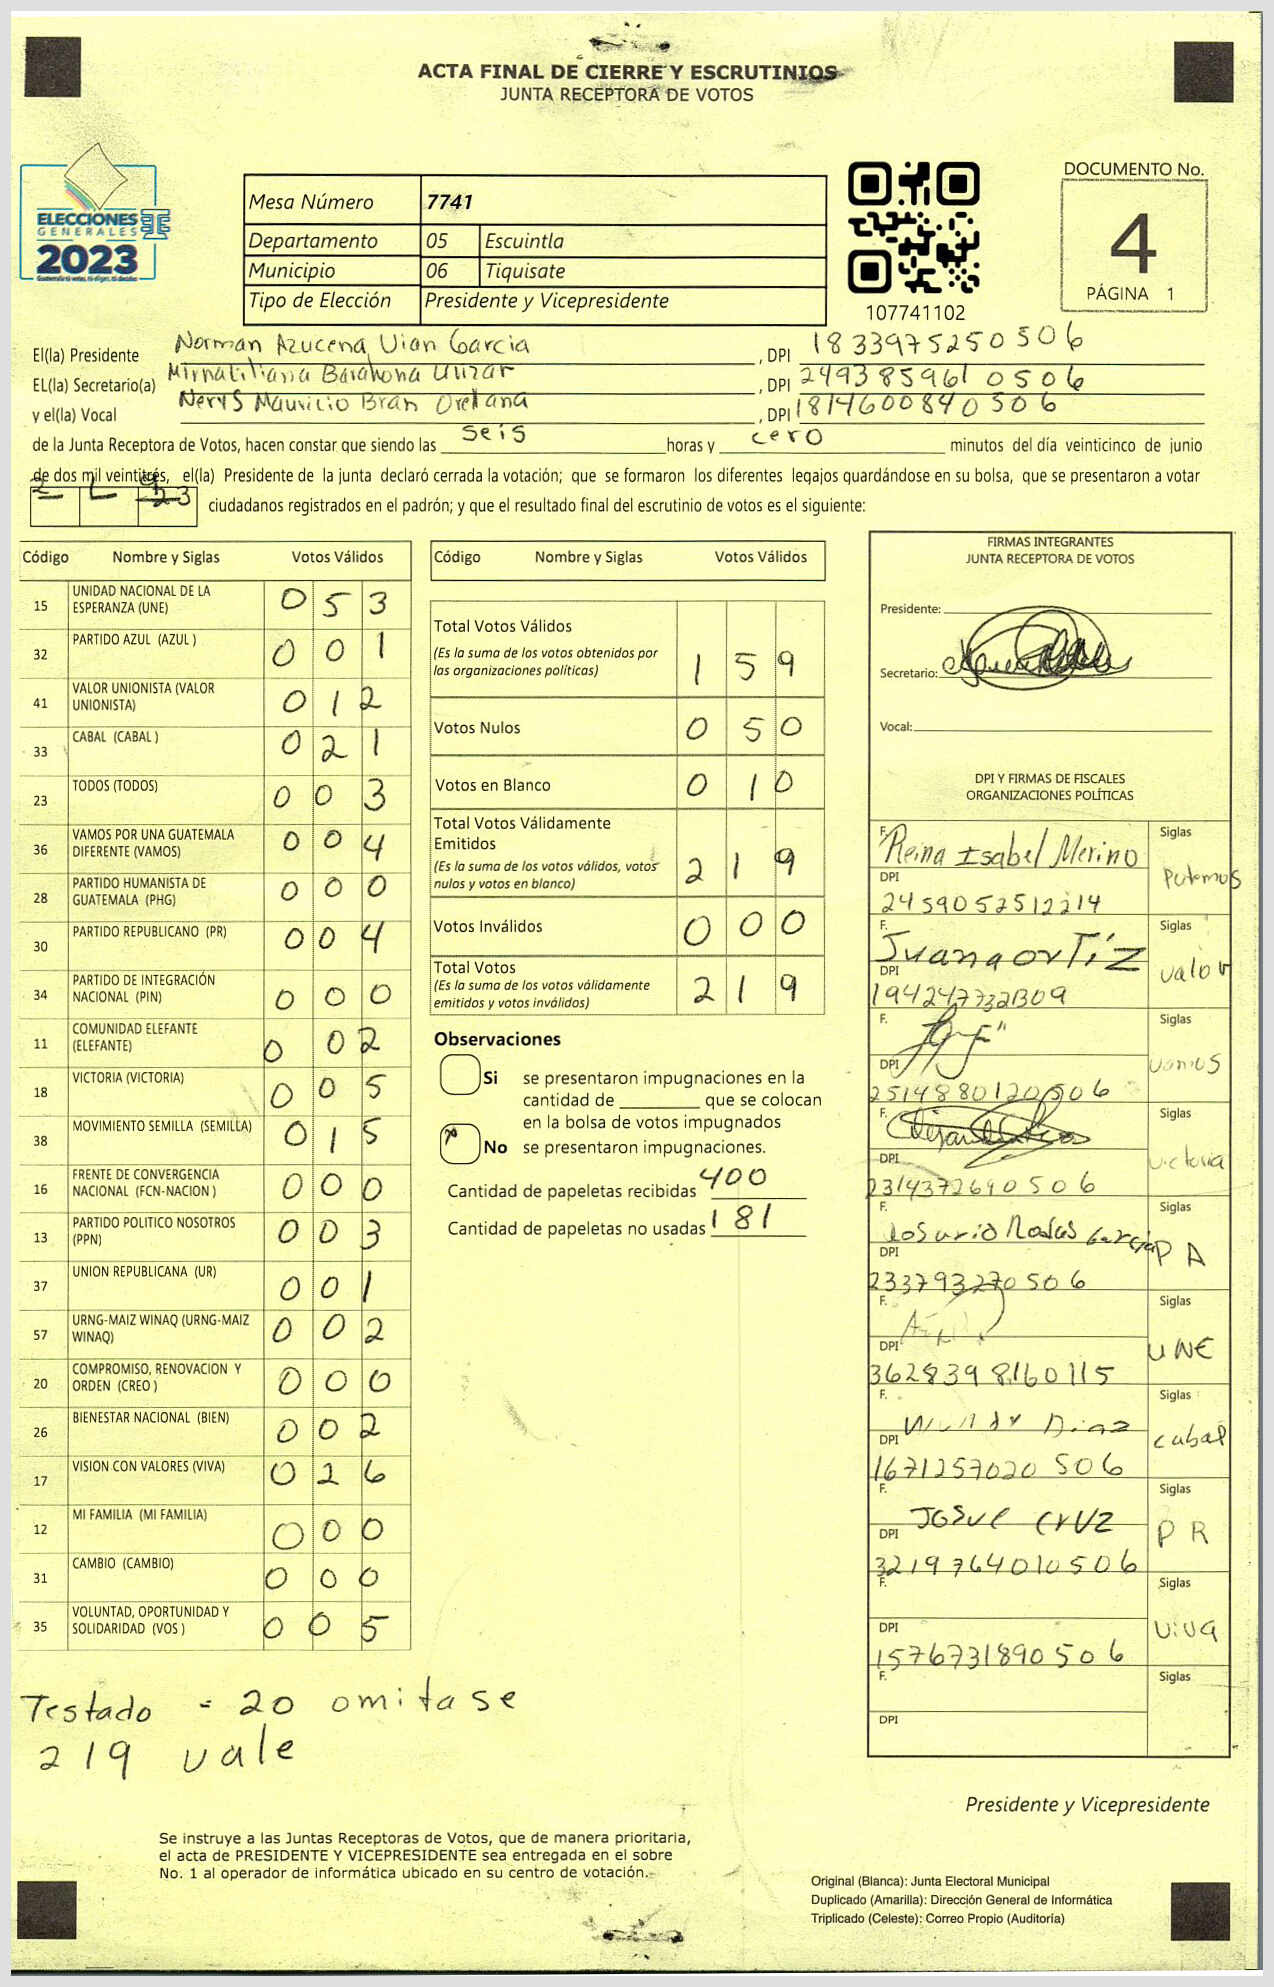 ACTA FINAL DE CIERRE Y ESCRUTINIOS
JUNTA RECEPTORA DE VOTOS
ELECCIONES
GENERALES
2023
Mesa Número 7741
Departamento 05 Escuintla
Municipio 06 Tiquisate
Tipo de Elección Presidente y Vicepresidente
107741102
DOCUMENTO No.
4
PÁGINA 1
El(la) Presidente Norman Azucena Vian Garcia, DPI 1833975250506
EL(la) Secretario(a) Barahona, DPI 2493859610506
y el(la) Vocal Nerys Mauricio Bran Orellana, DPI 1814600840506
de la Junta Receptora de Votos, hacen constar que siendo las seis horas y cero minutos del día veinticinco de junio
de dos mil veintitrés, el(la) Presidente de la junta declaró cerrada la votación; que se formaron los diferentes legajos guardándose en su bolsa, que se presentaron a votar
ciudadanos registrados en el padrón; y que el resultado final del escrutinio de votos es el siguiente:
Código Nombre y Siglas Votos Válidos
15 UNIDAD NACIONAL DE LA ESPERANZA (UNE) 053
32 PARTIDO AZUL (AZUL ) 001
41 VALOR UNIONISTA (VALOR UNIONISTA) 012
33 CABAL (CABAL ) 021
23 TODOS (TODOS) 003
36 VAMOS POR UNA GUATEMALA DIFERENTE (VAMOS) 004
28 PARTIDO HUMANISTA DE GUATEMALA (PHG) 000
30 PARTIDO REPUBLICANO (PR) 004
34 PARTIDO DE INTEGRACIÓN NACIONAL (PIN) 000
11 COMUNIDAD ELEFANTE (ELEFANTE) 002
18 VICTORIA (VICTORIA) 005
38 MOVIMIENTO SEMILLA (SEMILLA) 015
16 FRENTE DE CONVERGENCIA NACIONAL (FCN-NACION ) 000
13 PARTIDO POLITICO NOSOTROS (PPN) 003
37 UNION REPUBLICANA (UR) 001
57 URNG-MAIZ WINAQ (URNG-MAIZ WINAQ) 002
20 COMPROMISO, RENOVACION Y ORDEN (CREO ) 000
26 BIENESTAR NACIONAL (BIEN) 002
17 VISION CON VALORES (VIVA) 026
12 MI FAMILIA (MI FAMILIA) 000
31 CAMBIO (CAMBIO) 000
35 VOLUNTAD, OPORTUNIDAD Y SOLIDARIDAD (VOS ) 005
Testado = 20 omitase
219 vale
Código Nombre y Siglas Votos Válidos
Total Votos Válidos 159
(Es la suma de los votos obtenidos por
las organizaciones políticas)
Votos Nulos 050
Votos en Blanco 010
Total Votos Válidamente
Emitidos 219
(Es la suma de los votos válidos, votos
nulos y votos en blanco)
Votos Inválidos 000
Total Votos 219
(Es la suma de los votos válidamente
emitidos y votos inválidos)
Observaciones
Si se presentaron impugnaciones en la
cantidad de ________ que se colocan
en la bolsa de votos impugnados
x No se presentaron impugnaciones.
Cantidad de papeletas recibidas 400
Cantidad de papeletas no usadas 181
FIRMAS INTEGRANTES
JUNTA RECEPTORA DE VOTOS
Presidente:
Secretario:
Vocal:
DPI Y FIRMAS DE FISCALES
ORGANIZACIONES POLÍTICAS
F. Reina Isabel Merino Siglas
DPI
F. Juana Ortiz Siglas valor
DPI
F. Siglas vamos
DPI 2514880120506
F. Siglas victoria
DPI 2314372690506
F. Rosario Rosales Garcia Siglas PA
DPI 2337932270506
F. Siglas UNE
DPI 3628398160115
F. Diaz Siglas cabal
DPI 1671257020506
F. Josue Cruz Siglas PR
DPI 3219764010506
F. Siglas viva
DPI 1576731890506
F. Siglas
DPI
Presidente y Vicepresidente
Se instruye a las Juntas Receptoras de Votos, que de manera prioritaria,
el acta de PRESIDENTE Y VICEPRESIDENTE sea entregada en el sobre
No. 1 al operador de informática ubicado en su centro de votación.
Original (Blanca): Junta Electoral Municipal
Duplicado (Amarilla): Dirección General de Informática
Triplicado (Celeste): Correo Propio (Auditoría)